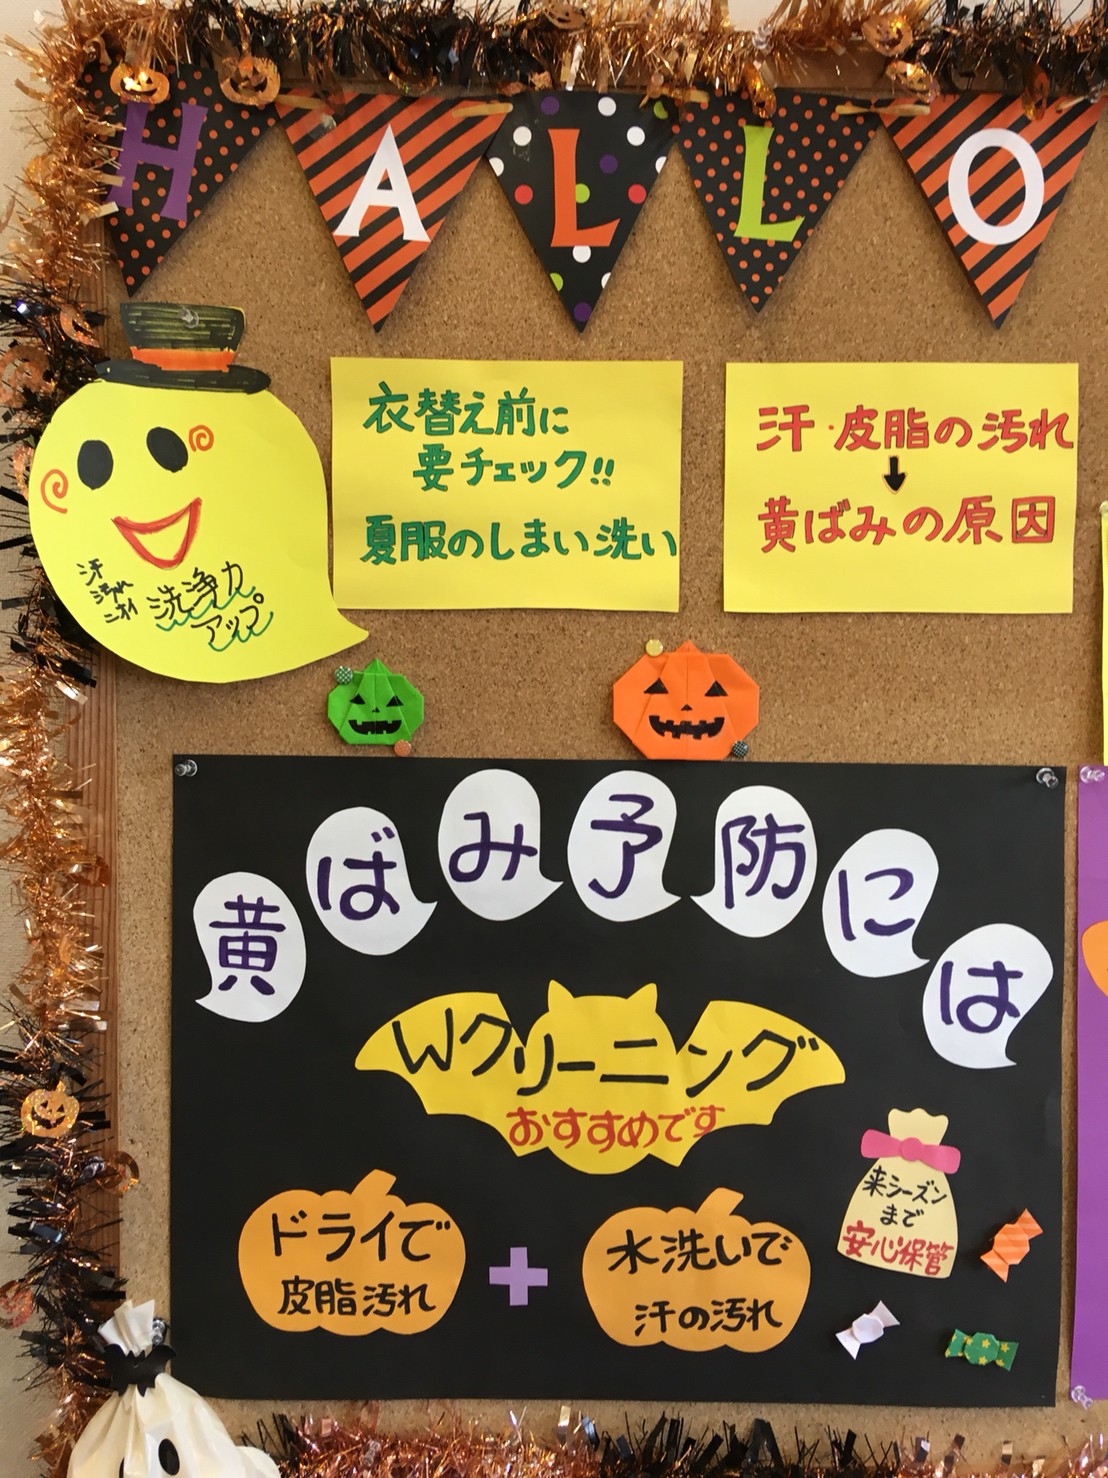 HALLO
衣替え前に
要チェック!!
夏服のしまい洗い
汗・皮脂の汚れ
↓
黄ばみの原因
汗
汚れ
ニオイ
洗浄力
アップ
黄ばみ予防には
Wクリーニング
おすすめです
ドライで
皮脂汚れ
+
水洗いで
汗の汚れ
来シーズン
まで
安心保管